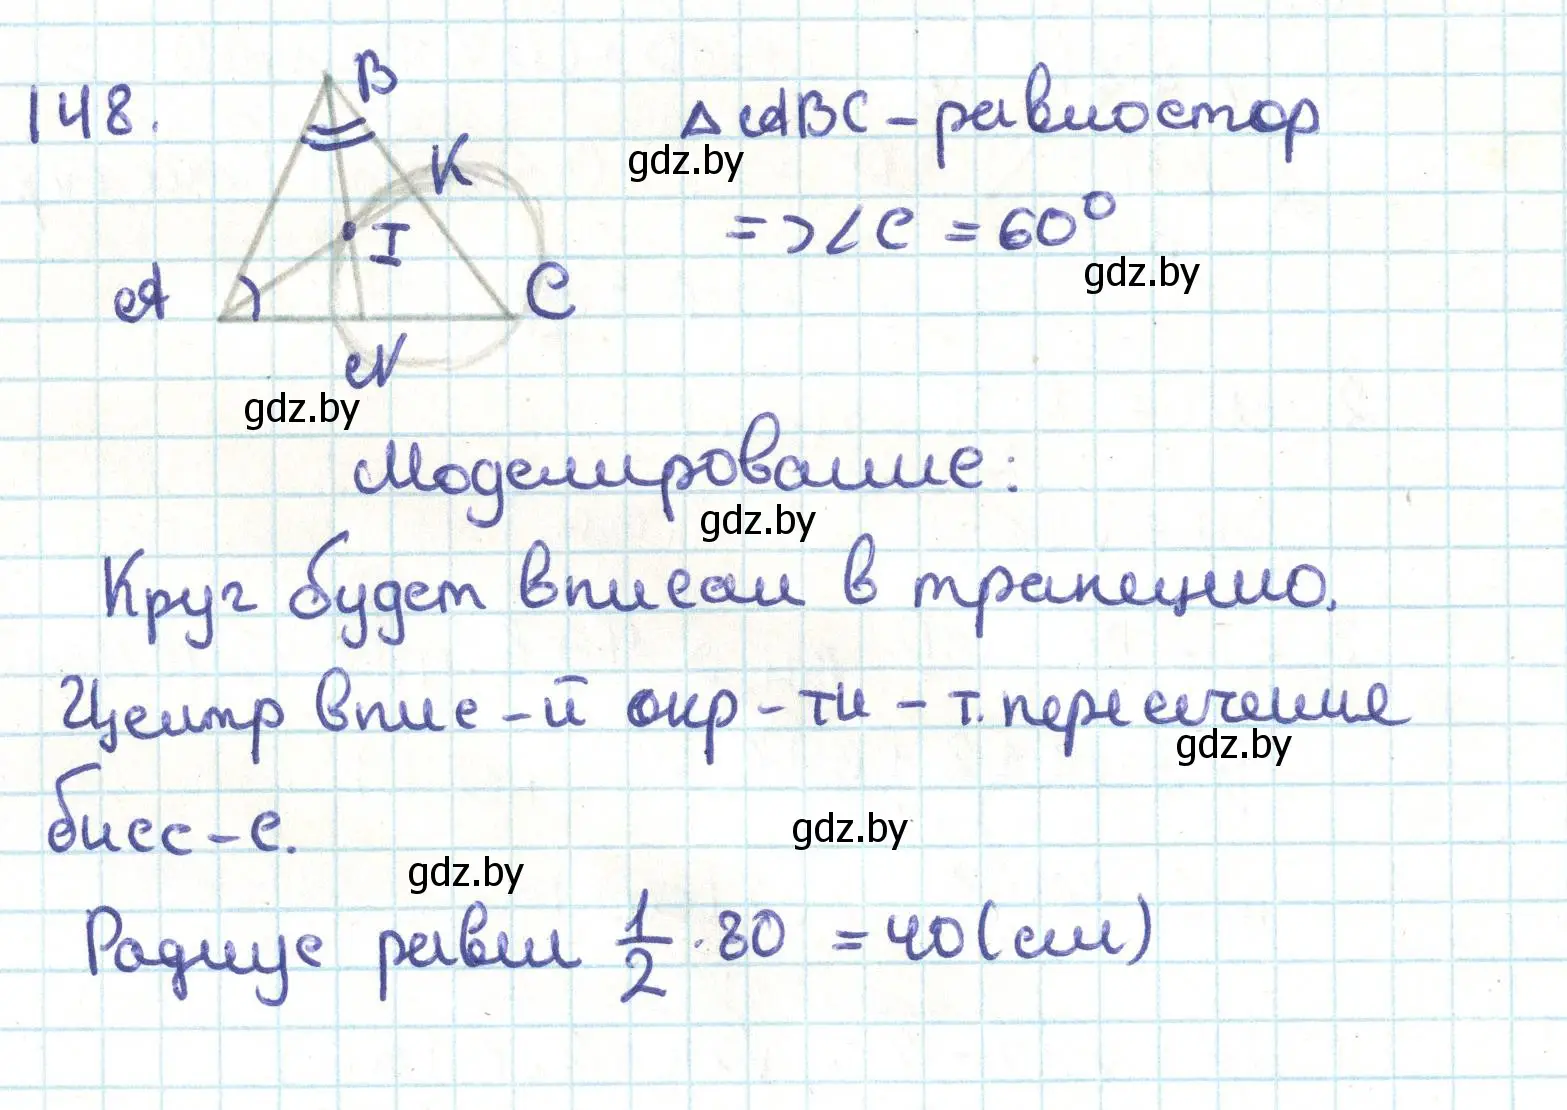 148.
B
K
I
A
C
N
△ABC - равностор
gdz.by
=> ∠C = 60°
gdz.by
gdz.by
Моделирование:
gdz.by
Круг будет вписан в трапецию.
Центр впис-й окр-ти - т. пересечение
gdz.by
бисс-с.
gdz.by
gdz.by
Радиус равен 1/2 · 80 = 40 (см)